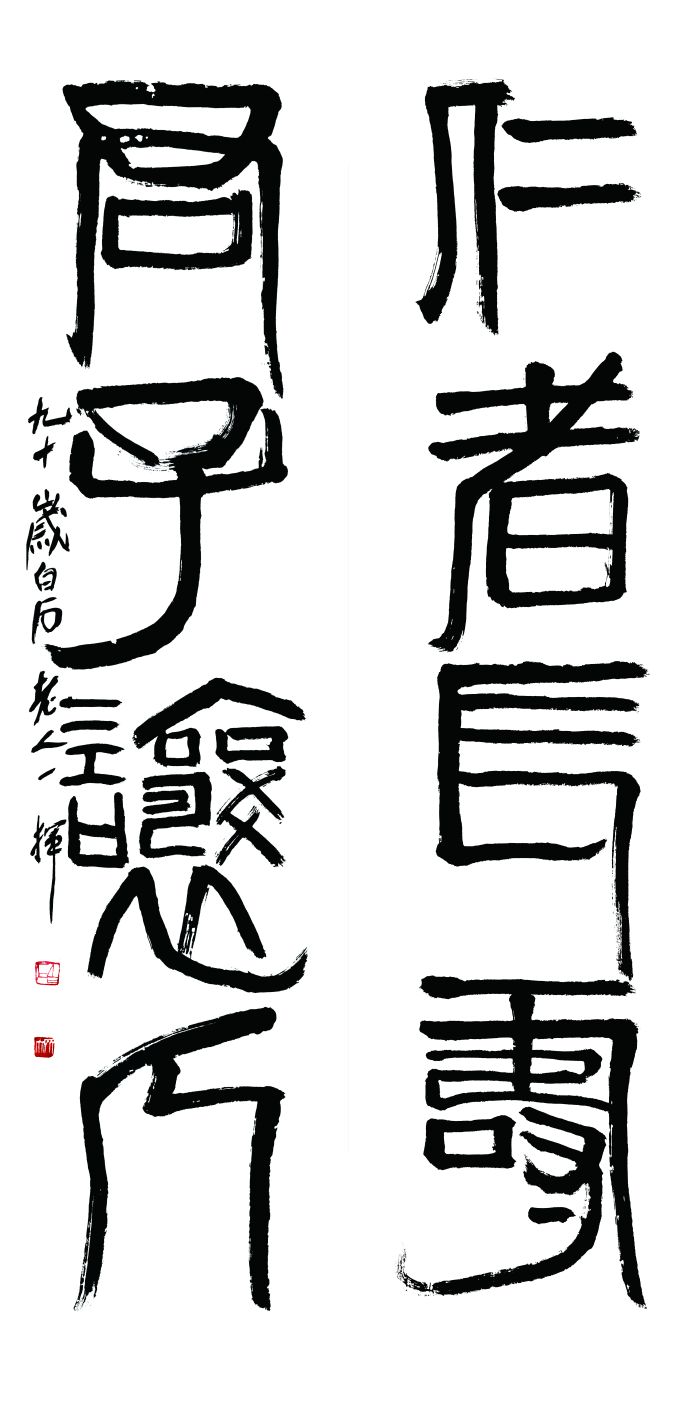 仁者長壽
君子
九十歲白石老人揮